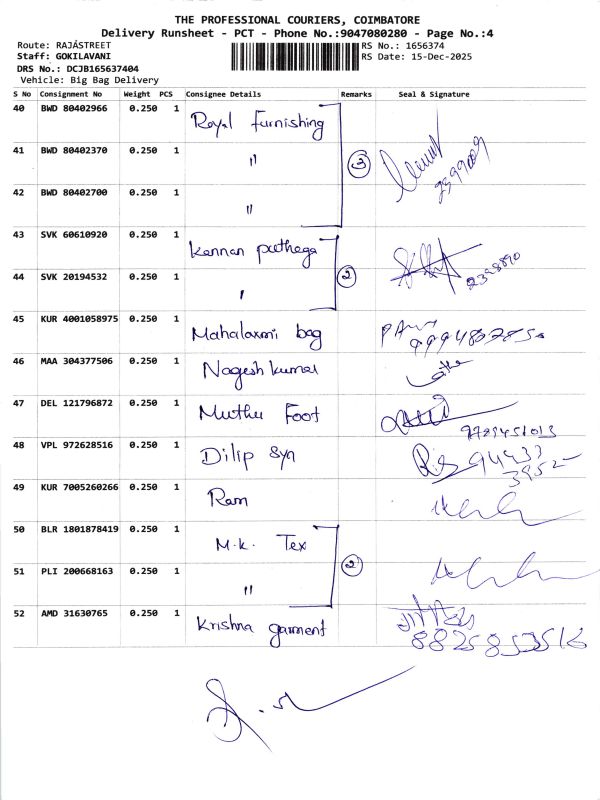 THE PROFESSIONAL COURIERS, COIMBATORE
Delivery Runsheet - PCT - Phone No.:9047080280 - Page No.:4
Route: RAJASTREET RS No.: 1656374
Staff: GOKILAVANI RS Date: 15-Dec-2025
DRS No.: DCJB165637404
Vehicle: Big Bag Delivery
S No Consignment No Weight PCS Consignee Details Remarks Seal & Signature
40 BWD 80402966 0.250 1 Royal Furnishing
41 BWD 80402370 0.250 1 " 3
42 BWD 80402700 0.250 1 "
43 SVK 60610920 0.250 1 Kannan puthaga
44 SVK 20194532 0.250 1 " 2
45 KUR 4001058975 0.250 1 Mahalaxmi bag
46 MAA 304377506 0.250 1 Nagesh kumar
47 DEL 121796872 0.250 1 Muthu Foot
48 VPL 972628516 0.250 1 Dilip Syn 94433
49 KUR 7005260266 0.250 1 Ram
50 BLR 1801878419 0.250 1 M.k. Tex
51 PLI 200668163 0.250 1 " 2
52 AMD 31630765 0.250 1 Krishna garment
8825853516